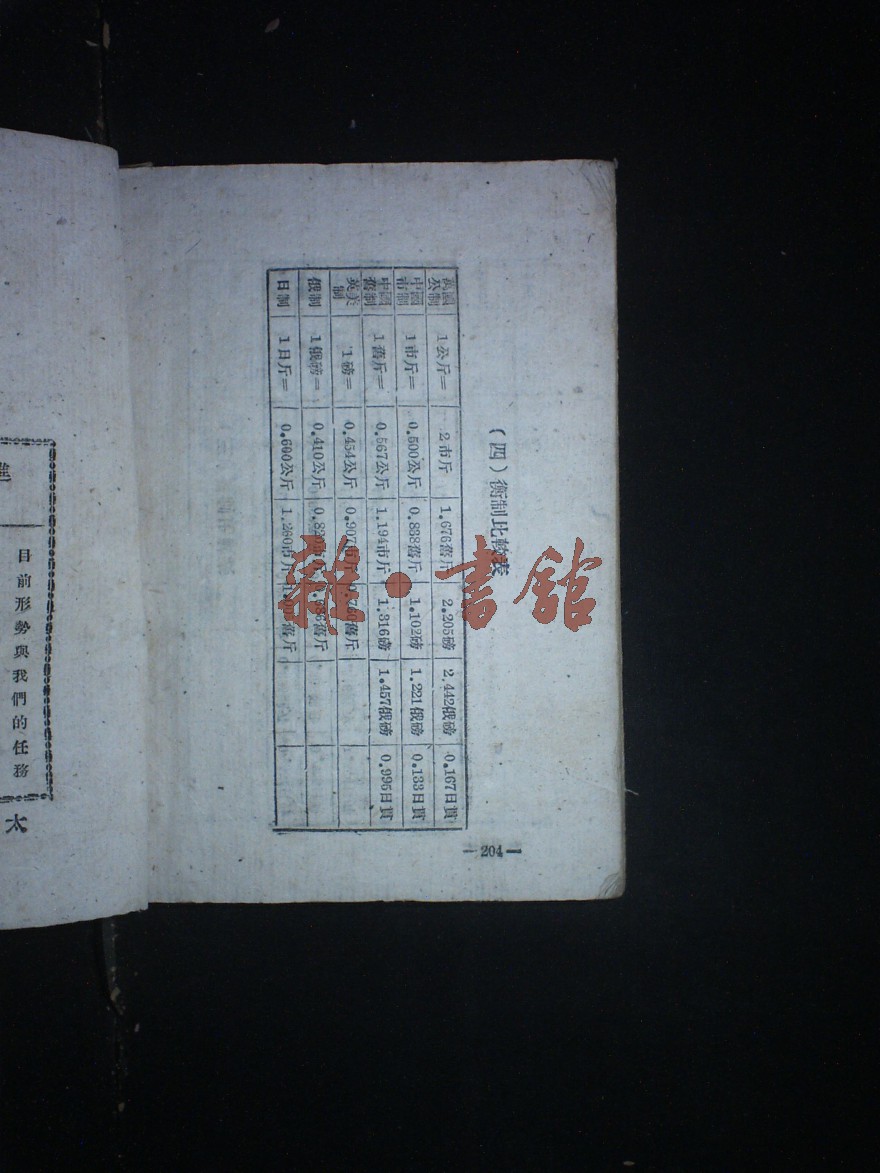 (四)衡制比較表
萬國公制 1公斤= 2市斤 1.676舊斤 2.205磅 2.442俄磅 0.167日貫
中國市制 1市斤= 0.500公斤 0.838舊斤 1.102磅 1.221俄磅 0.133日貫
中國舊制 1舊斤= 0.567公斤 1.194市斤 1.316磅 1.457俄磅 0.995日貫
英美制 1磅= 0.454公斤 0.907市斤 舊斤
俄制 1俄磅= 0.410公斤 舊斤
日制 1日斤= 0.600公斤 1.200市斤 舊斤
—204—
雜·書館
進
目前形勢與我們的任務
太